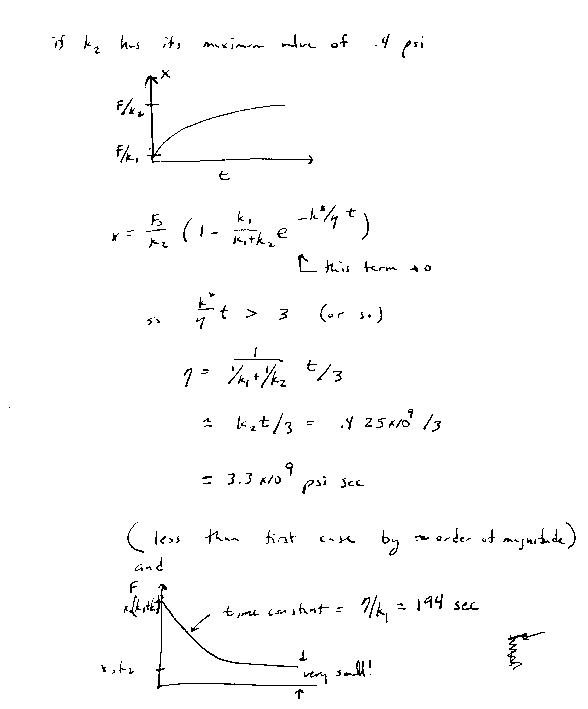 if k₂ has its maximum value of .4 psi
x
F/k₂
F/k₁
t
x = F₀/k₂ (1 - k₁/(k₁+k₂) e^(-k*/η t))
this term → 0
so k*/η t > 3 (or so)
η = 1/(1/k₁ + 1/k₂) t/3
≈ k₂t/3 = .4 25×10⁹/3
= 3.3×10⁹ psi sec
(less than first case by ≈ order of magnitude)
and
F
time constant = η/k₁ = 194 sec
x₀k₂
very small!